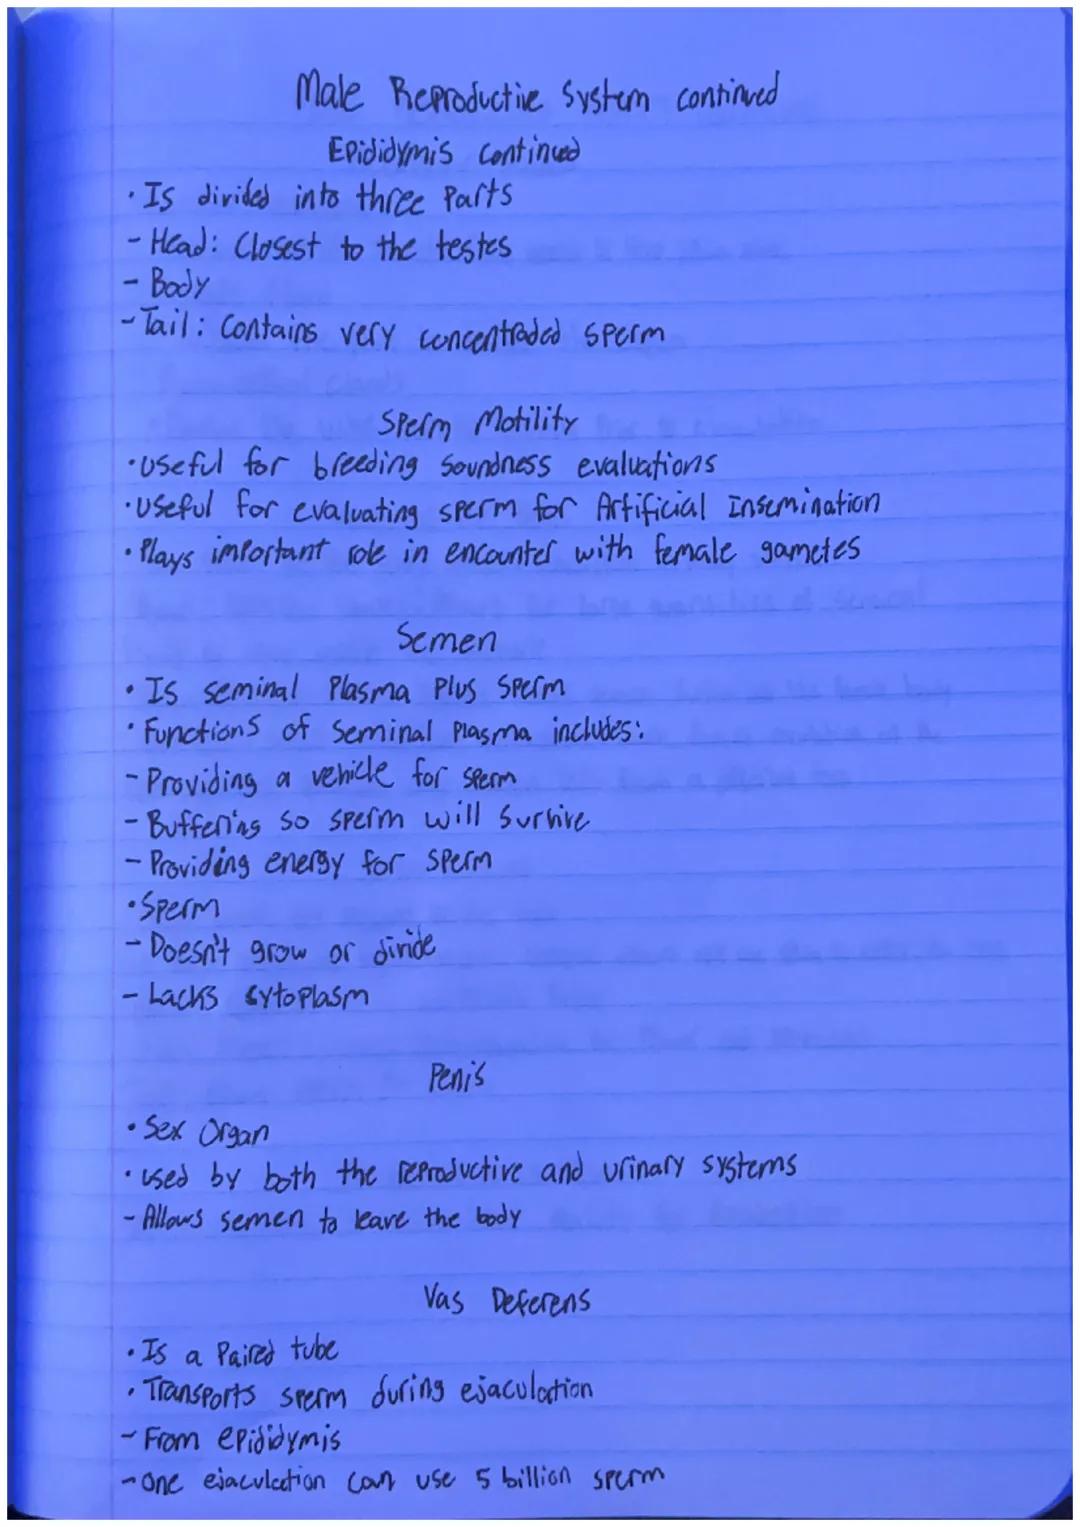 Male Reproductive System continued
Epididymis continued
• Is divided into three parts
- Head: Closest to the testes
- Body
- Tail: Contains very concentraded sperm
Sperm Motility
• Useful for breeding soundness evaluations
• Useful for evaluating sperm for Artificial Insemination
• Plays important role in encounter with female gametes
Semen
• Is seminal Plasma Plus Sperm
• Functions of Seminal Plasma includes:
- Providing a vehicle for sperm
- Buffering so sperm will survive
- Providing energy for sperm
• Sperm
- Doesn't grow or divide
- Lacks cytoplasm
Penis
• Sex Organ
• Used by both the reproductive and urinary systems
- Allows semen to leave the body
Vas Deferens
• Is a Paired tube
• Transports sperm during ejaculation
- From epididymis
- One ejaculation can use 5 billion sperm